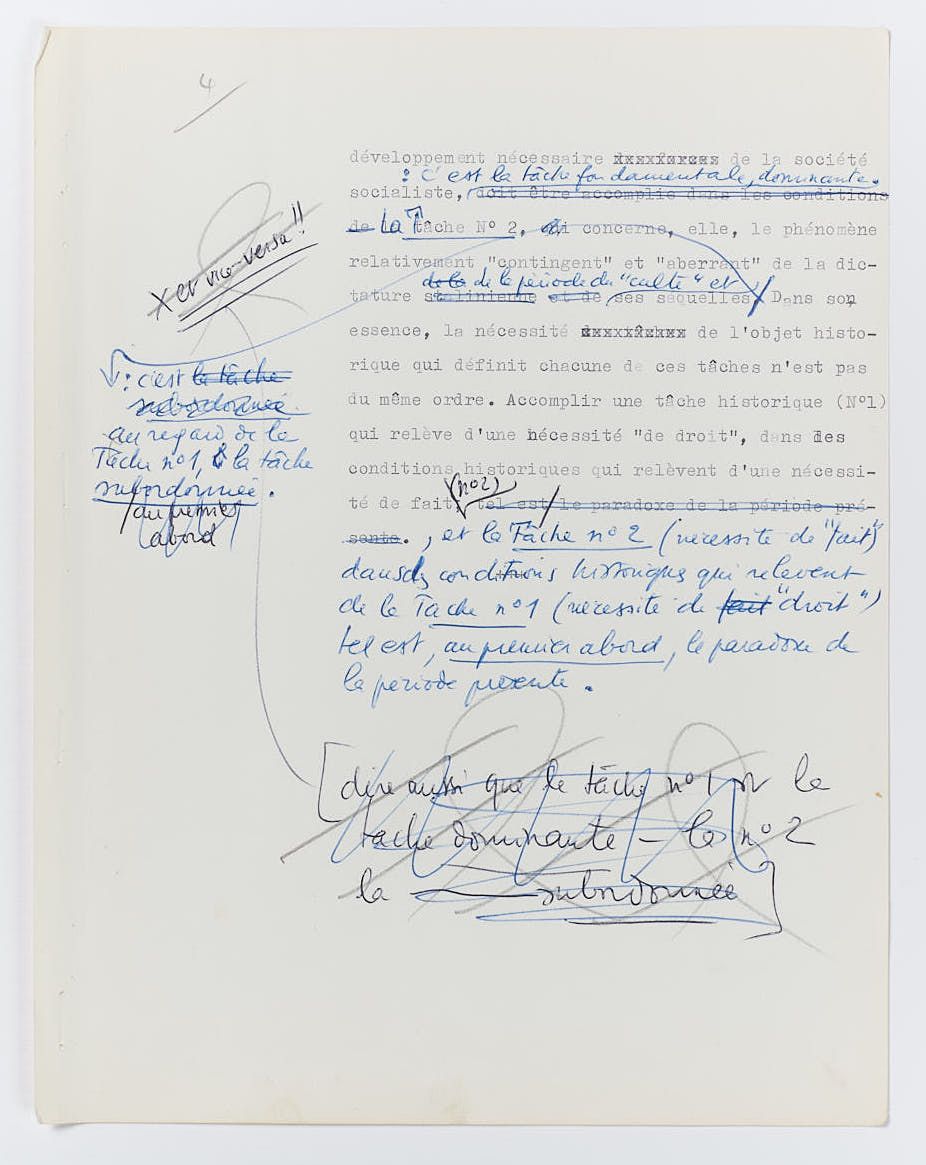 4
développement nécessaire de la société
: c'est la tâche fondamentale, dominante.
socialiste, doit être accomplie dans les conditions
de La Tâche N° 2, concerne, elle, le phénomène
relativement "contingent" et "aberrant" de la dic-
de la de la période du "culte" et
tature stalinienne et de ses séquelles. Dans son
essence, la nécessité de l'objet histo-
rique qui définit chacune de ces tâches n'est pas
du même ordre. Accomplir une tâche historique (N°1)
qui relève d'une nécessité "de droit", dans des
conditions historiques qui relèvent d'une nécessi-
(n°2)
té de fait, tel est le paradoxe de la période pré-
sente. , et la Tâche n° 2 (nécessité de "fait")
dans des conditions historiques qui relèvent
de la Tâche n°1 (nécessité de fait "droit")
tel est, au premier abord, le paradoxe de
la période présente.
x et vice-versa!!
: c'est la tâche
subordonnée.
au regard de la
Tâche n°1, la tâche
subordonnée.
au premier
abord
[dire aussi que la tâche n°1 est la
tâche dominante – la n° 2
la —— subordonnée]